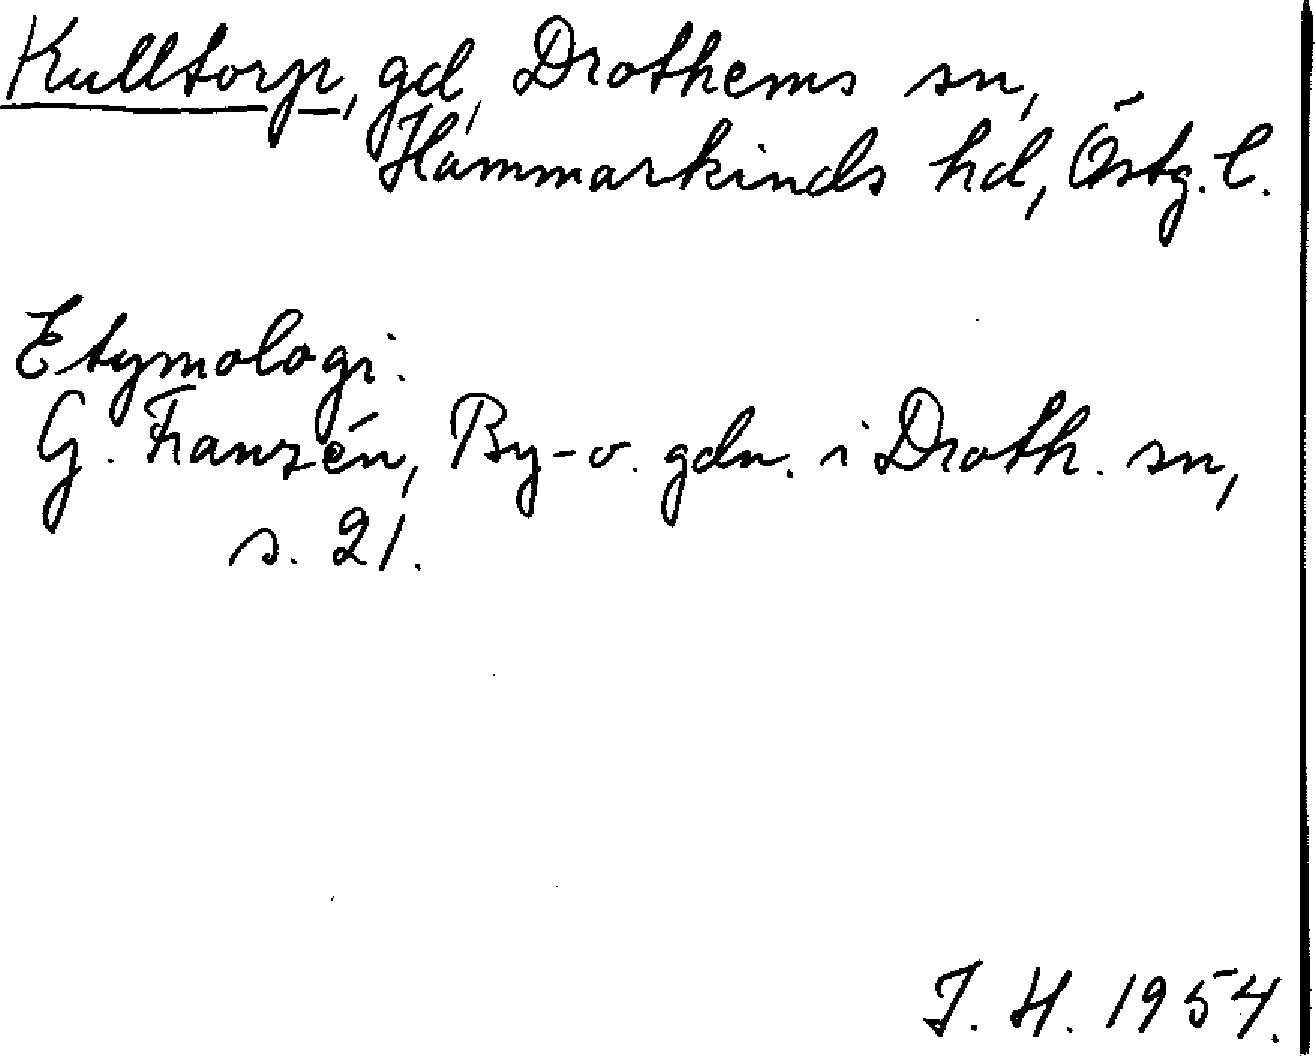 Kulltorp, gd, Drothems sn,
Hammarkinds hd, Östg. l.
Etymologi.
G. Franzén, By- o. gdn. i Droth. sn,
s. 21.
J. H. 1954.